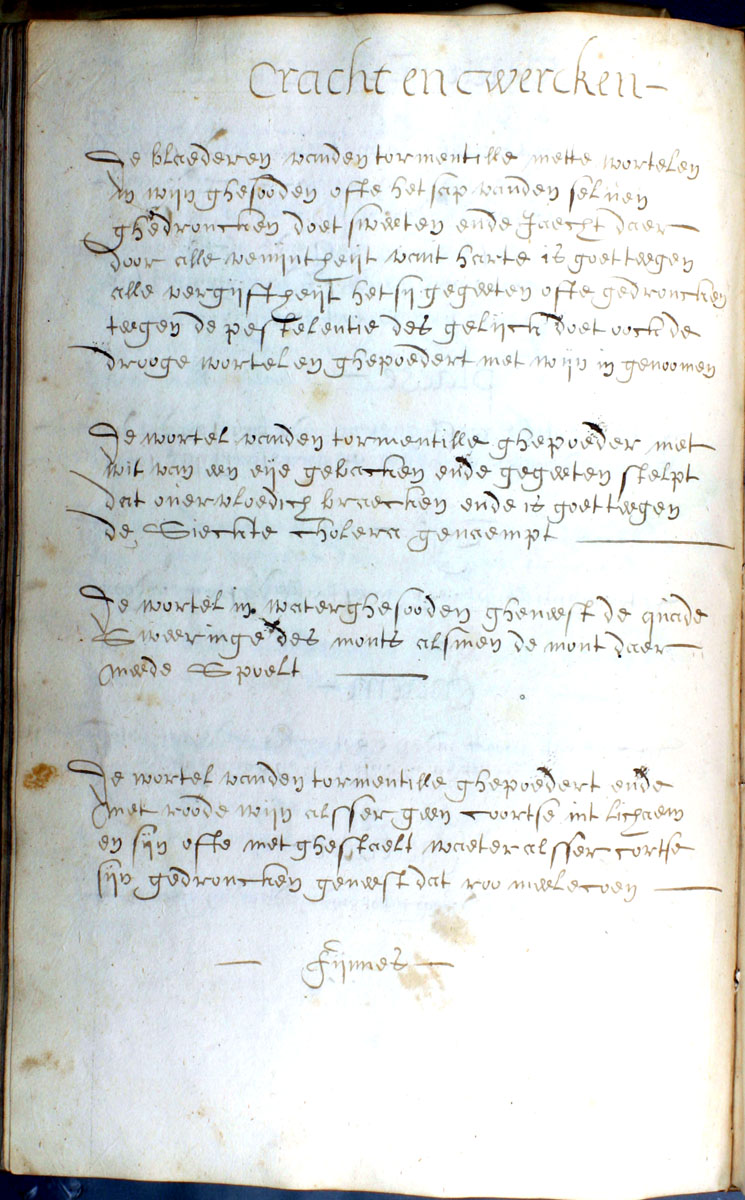 Cracht en cwercken
De blaederen vanden tormentille mette wortelen
in wijn ghesooden ofte het sap vanden selven
ghedroncken doet sweeten ende Jaecht daer
door alle venijntheijt vant harte is goet teegen
alle vergijftheijt het sij gegeeten ofte gedroncken
teegen de pestelentie des gelijck doet oock de
drooge wortelen ghepoedert met wijn in genoomen
De wortel vanden tormentille ghepoeder met
wit van een eije gebacken ende gegeeten stelpt
dat overvloedich braecken ende is goet teegen
de Sieckte Cholera genaempt
De wortel in water ghesooden gheneest de quade
Sweeringe des monts alsmen de mont daer
meede Spoelt
De wortel vanden tormentille ghepoedert ende
met roode wijn alsser geen coortse int lichaem
en sijn ofte met ghestaelt waeter alsser cortse
sijn gedroncken geneest dat roo meelecoen
Fijnnes